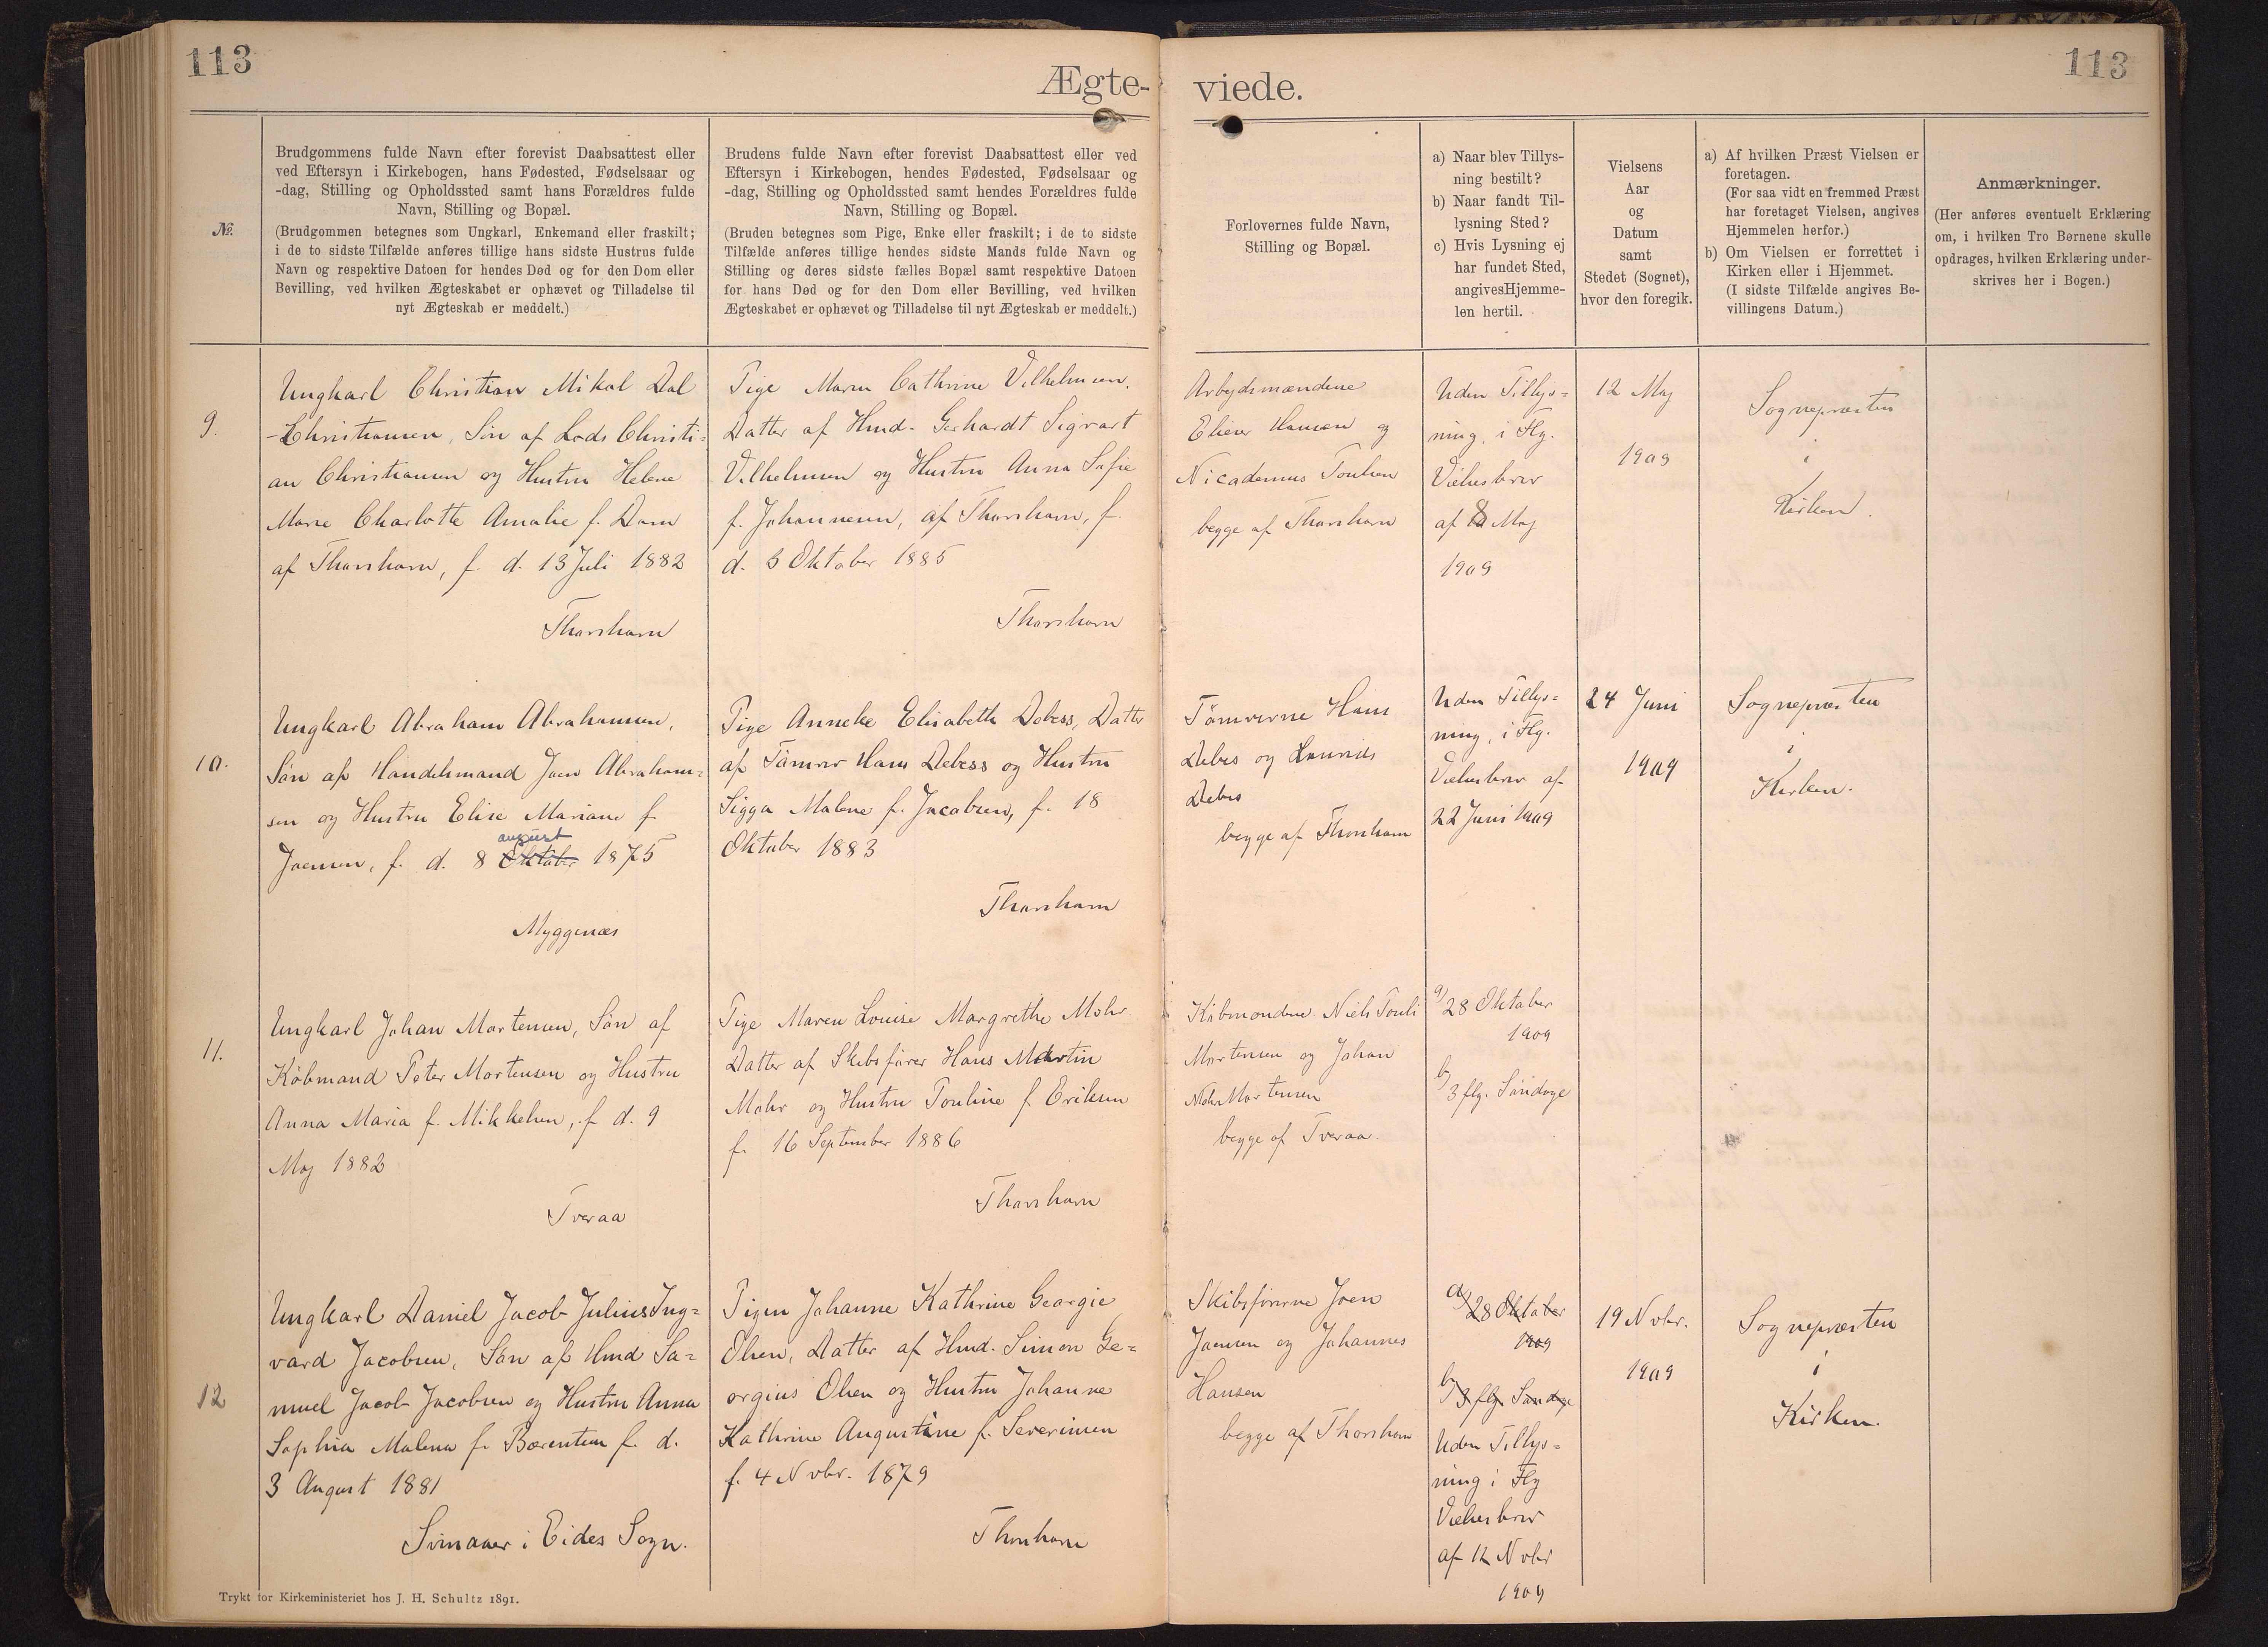 113
113
Ægte-
viede.
№.
Brudgommens fulde Navn efter forevist Daabsattest eller
ved Eftersyn i Kirkebogen, hans Fødested, Fødselsaar og
-dag, Stilling og Opholdssted samt hans Forældres fulde
Navn, Stilling og Bopæl.
(Brudgommen betegnes som Ungkarl, Enkemand eller fraskilt;
i de to sidste Tilfælde anføres tillige hans sidste Hustrus fulde
Navn og respektive Datoen for hendes Død og for den Dom eller
Bevilling, ved hvilken Ægteskabet er ophævet og Tilladelse til
nyt Ægteskab er meddelt.)
Brudens fulde Navn efter forevist Daabsattest eller ved
Eftersyn i Kirkebogen, hendes Fødested, Fødselsaar og
-dag, Stilling og Opholdssted samt hendes Forældres fulde
Navn, Stilling og Bopæl.
(Bruden betegnes som Pige, Enke eller fraskilt; i de to sidste
Tilfælde anføres tillige hendes sidste Mands fulde Navn og
Stilling og deres sidste fælles Bopæl samt respektive Datoen
for hans Død og for den Dom eller Bevilling, ved hvilken
Ægteskabet er ophævet og Tilladelse til nyt Ægteskab er meddelt.)
Forlovernes fulde Navn,
Stilling og Bopæl.
a) Naar blev Tillys-
ning bestilt?
b) Naar fandt Til-
lysning Sted?
c) Hvis Lysning ej
har fundet Sted,
angivesHjemme-
len hertil.
Vielsens
Aar
og
Datum
samt
Stedet (Sognet),
hvor den foregik.
a) Af hvilken Præst Vielsen er
foretagen.
(For saa vidt en fremmed Præst
har foretaget Vielsen, angives
Hjemmelen herfor.)
b) Om Vielsen er forrettet i
Kirken eller i Hjemmet.
(I sidste Tilfælde angives Be-
villingens Datum.)
Anmærkninger.
(Her anføres eventuelt Erklæring
om, i hvilken Tro Børnene skulle
opdrages, hvilken Erklæring under-
skrives her i Bogen.)
9.
Ungkarl Christian Mikal Dal
-Christiansen, Søn af Lods Christi=
an Christiansen og Hustru Helene
Marie Charlotte Amalie f. Dam
af Thorshavn, f. d. 13 Juli 1882
Thorshavn
Pige Maren Cathrine Vilhelmsen,
Datter af Hmd. Gerhardt Sigvart
Vilhelmsen og Hustru Anna Sofie
f. Johannesen, af Thorshavn, f.
d. 3 Oktober 1885
Thorshavn
Arbejdsmændene
Elieser Hansen og
Nicodemus Poulsen
begge af Thorshavn
Uden Tillys=
ning, i Flg.
Vielsesbrev
af 8 Maj
1909
12 Maj
1909
Sognepræsten
i
Kirken.
10.
Ungkarl Abraham Abrahamsen,
Søn af Handelsmand Joen Abraham=
sen og Hustru Elise Mariane f.
august
Joensen, f. d. 8 Oktober 1875
Myggenæs
Pige Anneke Elisabeth Debess, Datter
af Tömrer Hans Debess og Hustru
Sigga Malene f. Jacobsen, f. 18
Oktober 1883
Thorshavn
Tömrerne Hans
Debes og Laurids
Debes
begge af Thorshavn
Uden Tillys=
ning, i Flg.
Vielsesbrev af
22 Juni 1909
24 Juni
1909
Sognepræsten
i
Kirken.
11.
Ungkarl Johan Mortensen, Søn af
Købmand Peter Mortensen og Hustru
Anna Maria f. Mikkelsen, f. d. 9
Maj 1882
Tveraa
Pige Maren Louise Margrethe Mohr
Datter af Skibsfører Hans Martin
Mohr og Hustru Pouline f. Eriksen
f. 16 September 1886
Thorshavn
Købmændene Niels Pouli
Mortensen og Johan
Mohr Mortensen
begge af Tveraa.
a/ 28 Oktober
1909
b/ 3 flg. Søndage
12
Ungkarl Daniel Jacob Julius Ing=
vard Jacobsen, Søn af Hmd Sa=
muel Jacob Jacobsen og Hustru Anna
Sophia Malena f. Bærentsen f. d.
3 August 1881
Svinaaer i Eides Sogn.
Pigen Johanne Kathrine Georgie
Olsen, Datter af Hmd. Simon Ge=
orgius Olsen og Hustru Johanne
Kathrine Augustine f. Severinsen
f. 4 Novbr. 1879
Thorshavn
Skibsførerne Joen
Joensen og Johannes
Hansen
begge af Thorshavn
a/ 28 Oktober
1909
b/ 3 flg Søndage
Uden Tillys=
ning i Flg
Vielsesbrev
af 12 Novbr
1909
19 Novbr.
1909
Sognepræsten
i
Kirken.
Trykt for Kirkeministeriet hos J. H. Schultz 1891.